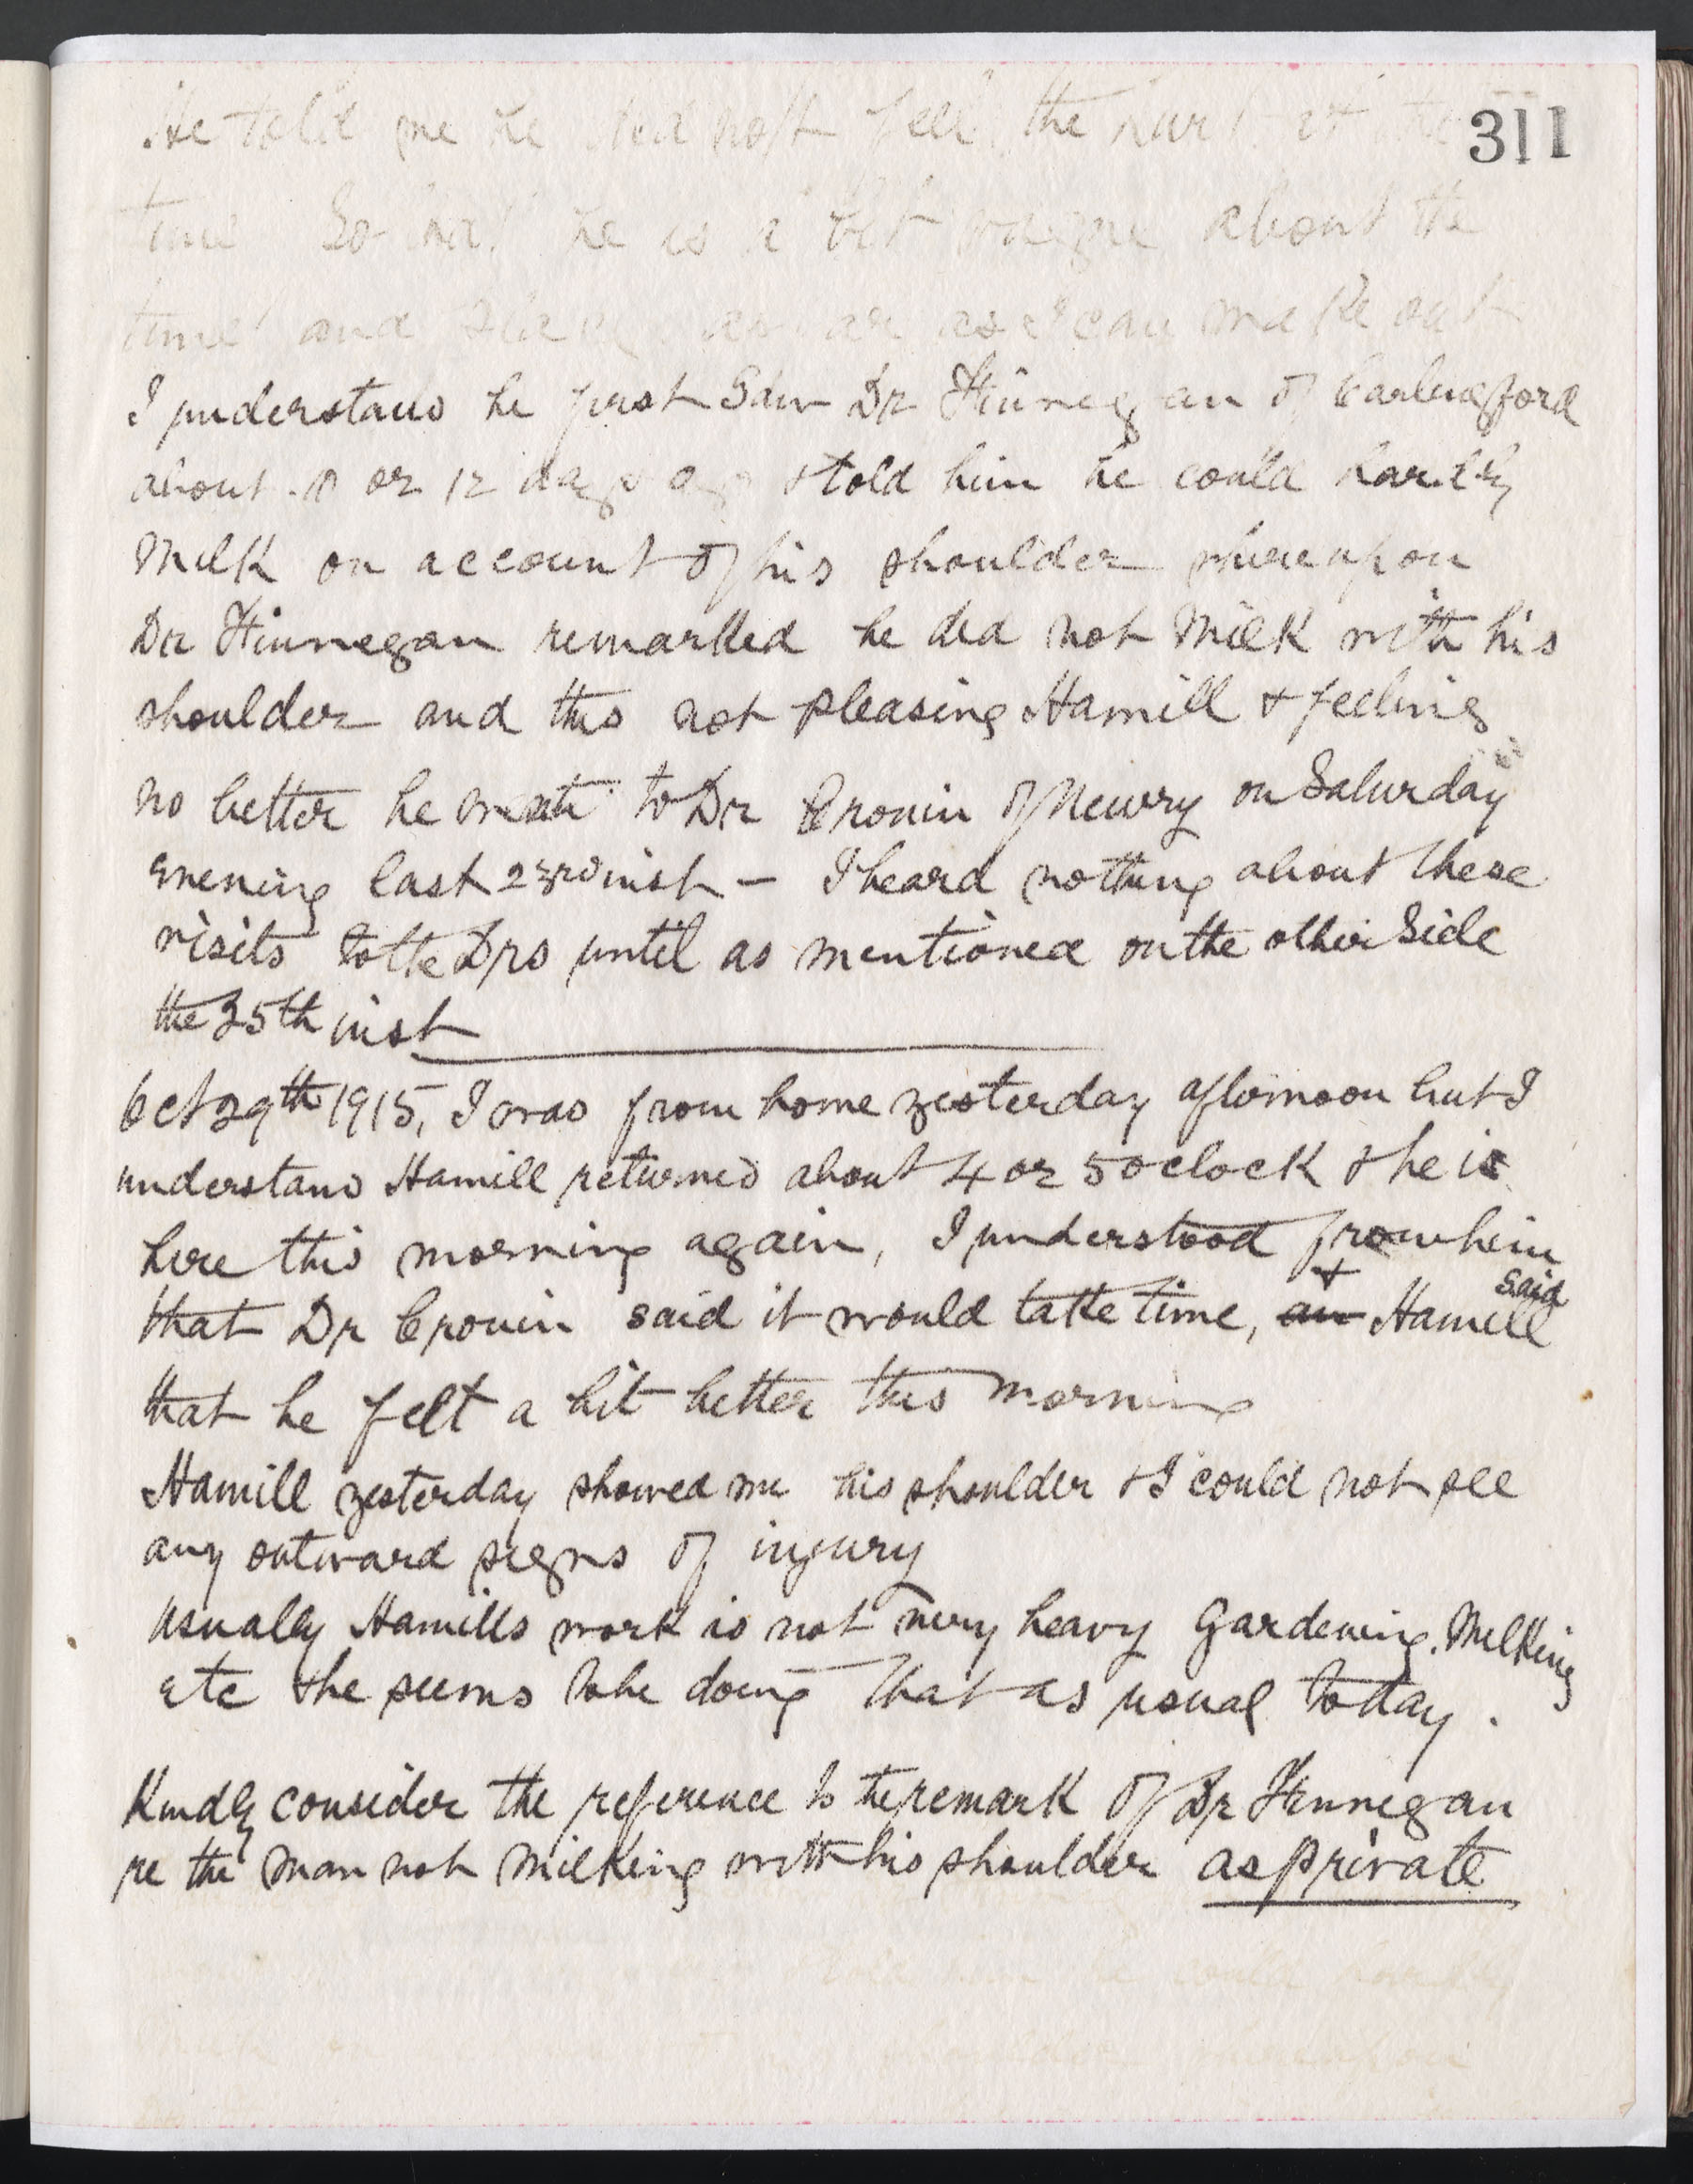 311
He told me he did not feel the hurt at the
time so that he is a bit vague about the
time and place as far as I can make out
I understand he first saw Dr Finnegan of Carlingford
about or 12 days ago & told him he could hardly
milk on account of his shoulder whereupon
Dr Finnegan remarked he did not milk with his
shoulder and this not pleasing Hamill & feeling
no better he went to Dr Cronin of Newry on Saturday
evening last 23rd inst — I heard nothing about these
visits to the Drs until as mentioned on the other side
the 25th inst
Oct 29th 1915, I was from home yesterday afternoon but I
understand Hamill returned about 4 or 5 oclock & he is
here this morning again, I understood from him
that Dr Cronin said it would take time, an & Hamill said
that he felt a bit better this morning
Hamill yesterday showed me his shoulder & I could not see
any outward signs of injury
Usually Hamills work is not very heavy Gardening. Milking
etc & he seems to be doing that as usual today.
Kindly consider the reference to the remark of Dr Finnegan
re the man not milking with his shoulder as private